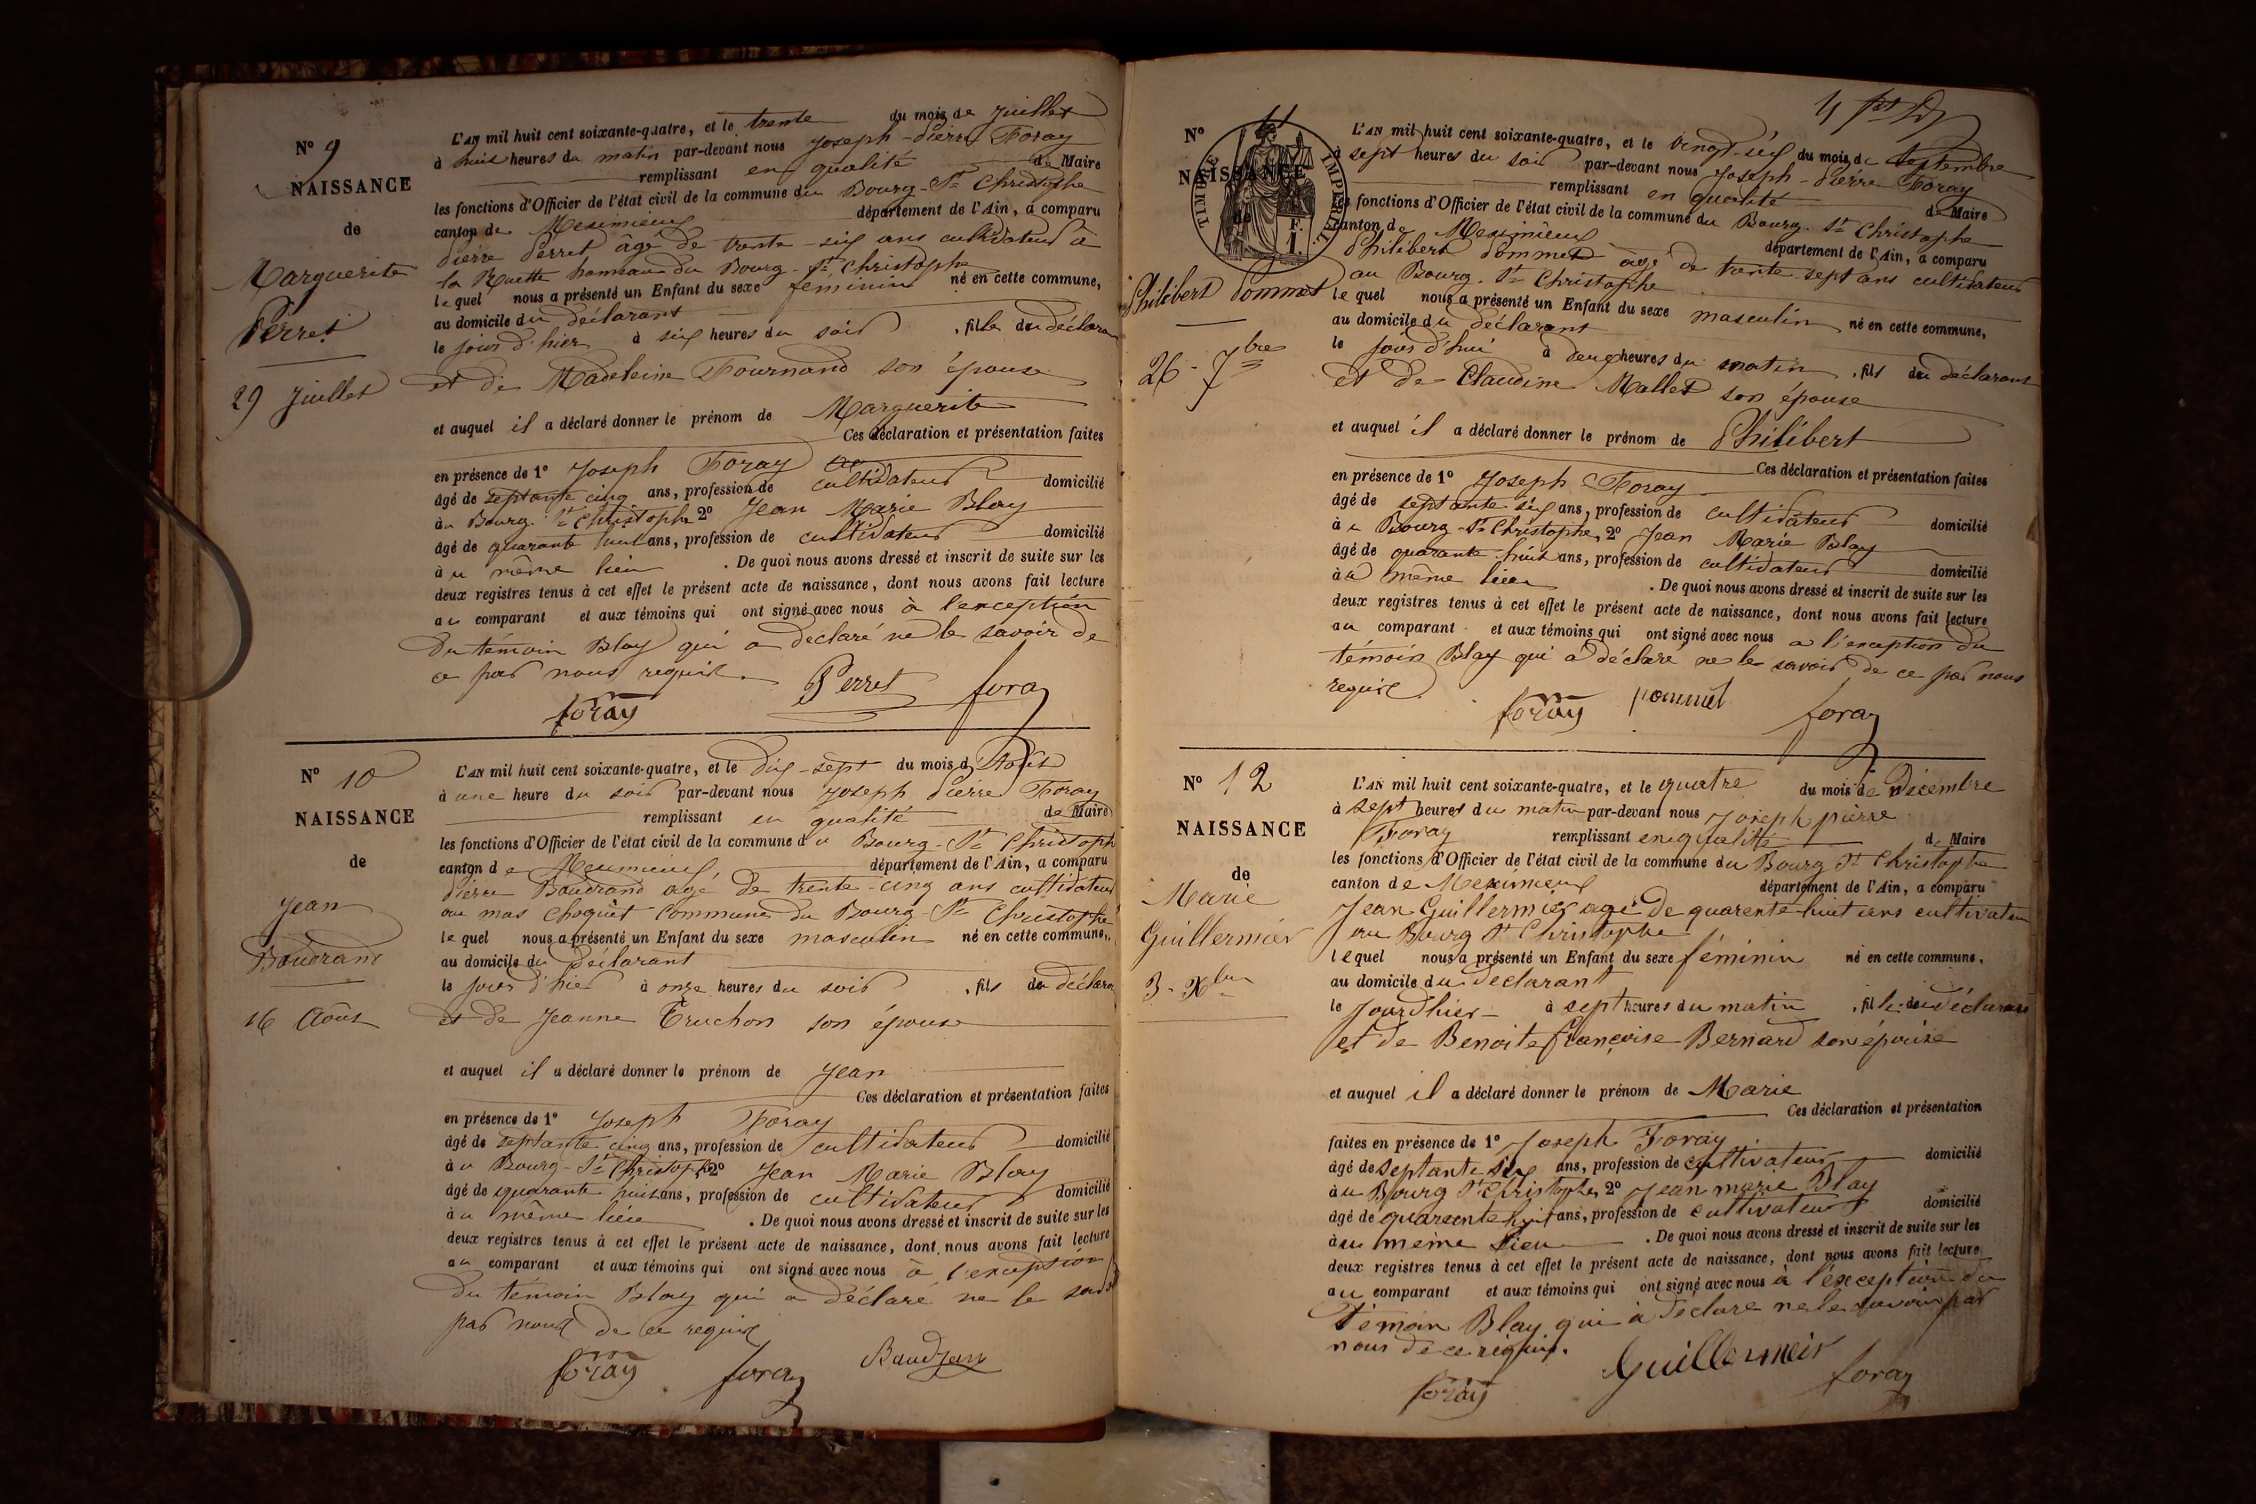 N° 9
NAISSANCE
de
Marguerite
Perret
29 Juillet
L'AN mil huit cent soixante-quatre, et le trente du mois de Juillet
à huit heures du matin par-devant nous Joseph-Pierre Foray
remplissant en qualité de Maire
les fonctions d'Officier de l'état civil de la commune du Bourg-St Christophe
canton de Meximieux département de l'Ain, a comparu
Pierre Perret âgé de trente-six ans cultivateur à
la Ruette hameau du Bourg-St Christophe
lequel nous a présenté un Enfant du sexe féminin né en cette commune,
au domicile du déclarant
le jour d'hier à six heures du soir, fille du déclarant
et de Madeleine Tournand son épouse
et auquel il a déclaré donner le prénom de Marguerite
Ces déclaration et présentation faites
en présence de 1° Joseph Foray
âgé de septante cinq ans, profession de cultivateur domicilié
au Bourg-St Christophe 2° Jean Marie Blay
âgé de quarante huit ans, profession de cultivateur domicilié
au même lieu. De quoi nous avons dressé et inscrit de suite sur les
deux registres tenus à cet effet le présent acte de naissance, dont nous avons fait lecture
au comparant et aux témoins qui ont signé avec nous à l'exception
du témoin Blay qui a déclaré ne le savoir de
ce par nous requis.
Perret foray
foray
N° 10
NAISSANCE
de
Jean
Baudrand
16 Août
L'AN mil huit cent soixante-quatre, et le dix-sept du mois d'Août
à une heure du soir par-devant nous Joseph Pierre Foray
remplissant en qualité de Maire
les fonctions d'Officier de l'état civil de la commune du Bourg-St Christoph
canton de Meximieux département de l'Ain, a comparu
Pierre Baudrand agé de trente-cinq ans cultivateur
au mas Choquet commune du Bourg-St Christophe
lequel nous a présenté un Enfant du sexe masculin né en cette commune,
au domicile du déclarant
le jour d'hier à onze heures du soir, fils du déclarant
et de Jeanne Truchon son épouse
et auquel il a déclaré donner le prénom de Jean
Ces déclaration et présentation faites
en présence de 1° Joseph Foray
âgé de septante cinq ans, profession de cultivateur domicilié
au Bourg-St Christophe 2° Jean Marie Blay
âgé de quarante huit ans, profession de cultivateur domicilié
au même lieu. De quoi nous avons dressé et inscrit de suite sur les
deux registres tenus à cet effet le présent acte de naissance, dont nous avons fait lecture
au comparant et aux témoins qui ont signé avec nous à l'exception
du témoin Blay qui a déclaré ne le savoir
par nous de ce requis
foray foray
N° 11
NAISSANCE
de
TIMBRE IMPERIAL
1 F.
Philibert Pommet
26 - 7bre
L'AN mil huit cent soixante-quatre, et le vingt-six du mois de Septembre
à sept heures du soir par-devant nous Joseph-Pierre Foray
remplissant en qualité de Maire
les fonctions d'Officier de l'état civil de la commune du Bourg-St Christophe
canton de Meximieux département de l'Ain, a comparu
Philibert Pommet âgé de trente sept ans cultivateur
au Bourg-St Christophe
lequel nous a présenté un Enfant du sexe masculin né en cette commune,
au domicile du déclarant
le jour d'hui à deux heures du matin, fils du déclarant
et de Claudine Mallet son épouse
et auquel il a déclaré donner le prénom de Philibert
Ces déclaration et présentation faites
en présence de 1° Joseph Foray
âgé de septante six ans, profession de cultivateur domicilié
au Bourg-St Christophe, 2° Jean Marie Blay
âgé de quarante-huit ans, profession de cultivateur domicilié
au même lieu. De quoi nous avons dressé et inscrit de suite sur les
deux registres tenus à cet effet le présent acte de naissance, dont nous avons fait lecture
au comparant et aux témoins qui ont signé avec nous à l'exception du
témoin Blay qui a déclaré ne le savoir de ce par nous
requis
foray pommet foray
N° 12
NAISSANCE
de
Marie
Guillermier
3 - Xbre
L'AN mil huit cent soixante-quatre, et le quatre du mois de Décembre
à sept heures du matin par-devant nous Joseph pierre
Foray remplissant en qualité de Maire
les fonctions d'Officier de l'état civil de la commune du Bourg St Christophe
canton de Meximieux département de l'Ain, a comparu
Jean Guillermier agé de quarente-huit ans cultivateur
au Bourg St Christophe
lequel nous a présenté un Enfant du sexe féminin né en cette commune,
au domicile du déclarant
le Jour d'hier à sept heures du matin, fille du déclarant
et de Benoite françoise Bernard son épouse
et auquel il a déclaré donner le prénom de Marie
Ces déclaration et présentation
faites en présence de 1° Joseph Foray
âgé de septante six ans, profession de cultivateur domicilié
au Bourg St Christophe, 2° Jean marie Blay
âgé de quarente huit ans, profession de cultivateur domicilié
au même lieu. De quoi nous avons dressé et inscrit de suite sur les
deux registres tenus à cet effet le présent acte de naissance, dont nous avons fait lecture
au comparant et aux témoins qui ont signé avec nous à l'exception du
témoin Blay qui à déclare ne le savoir par
nous de ce requis.
Guillermier foray
foray